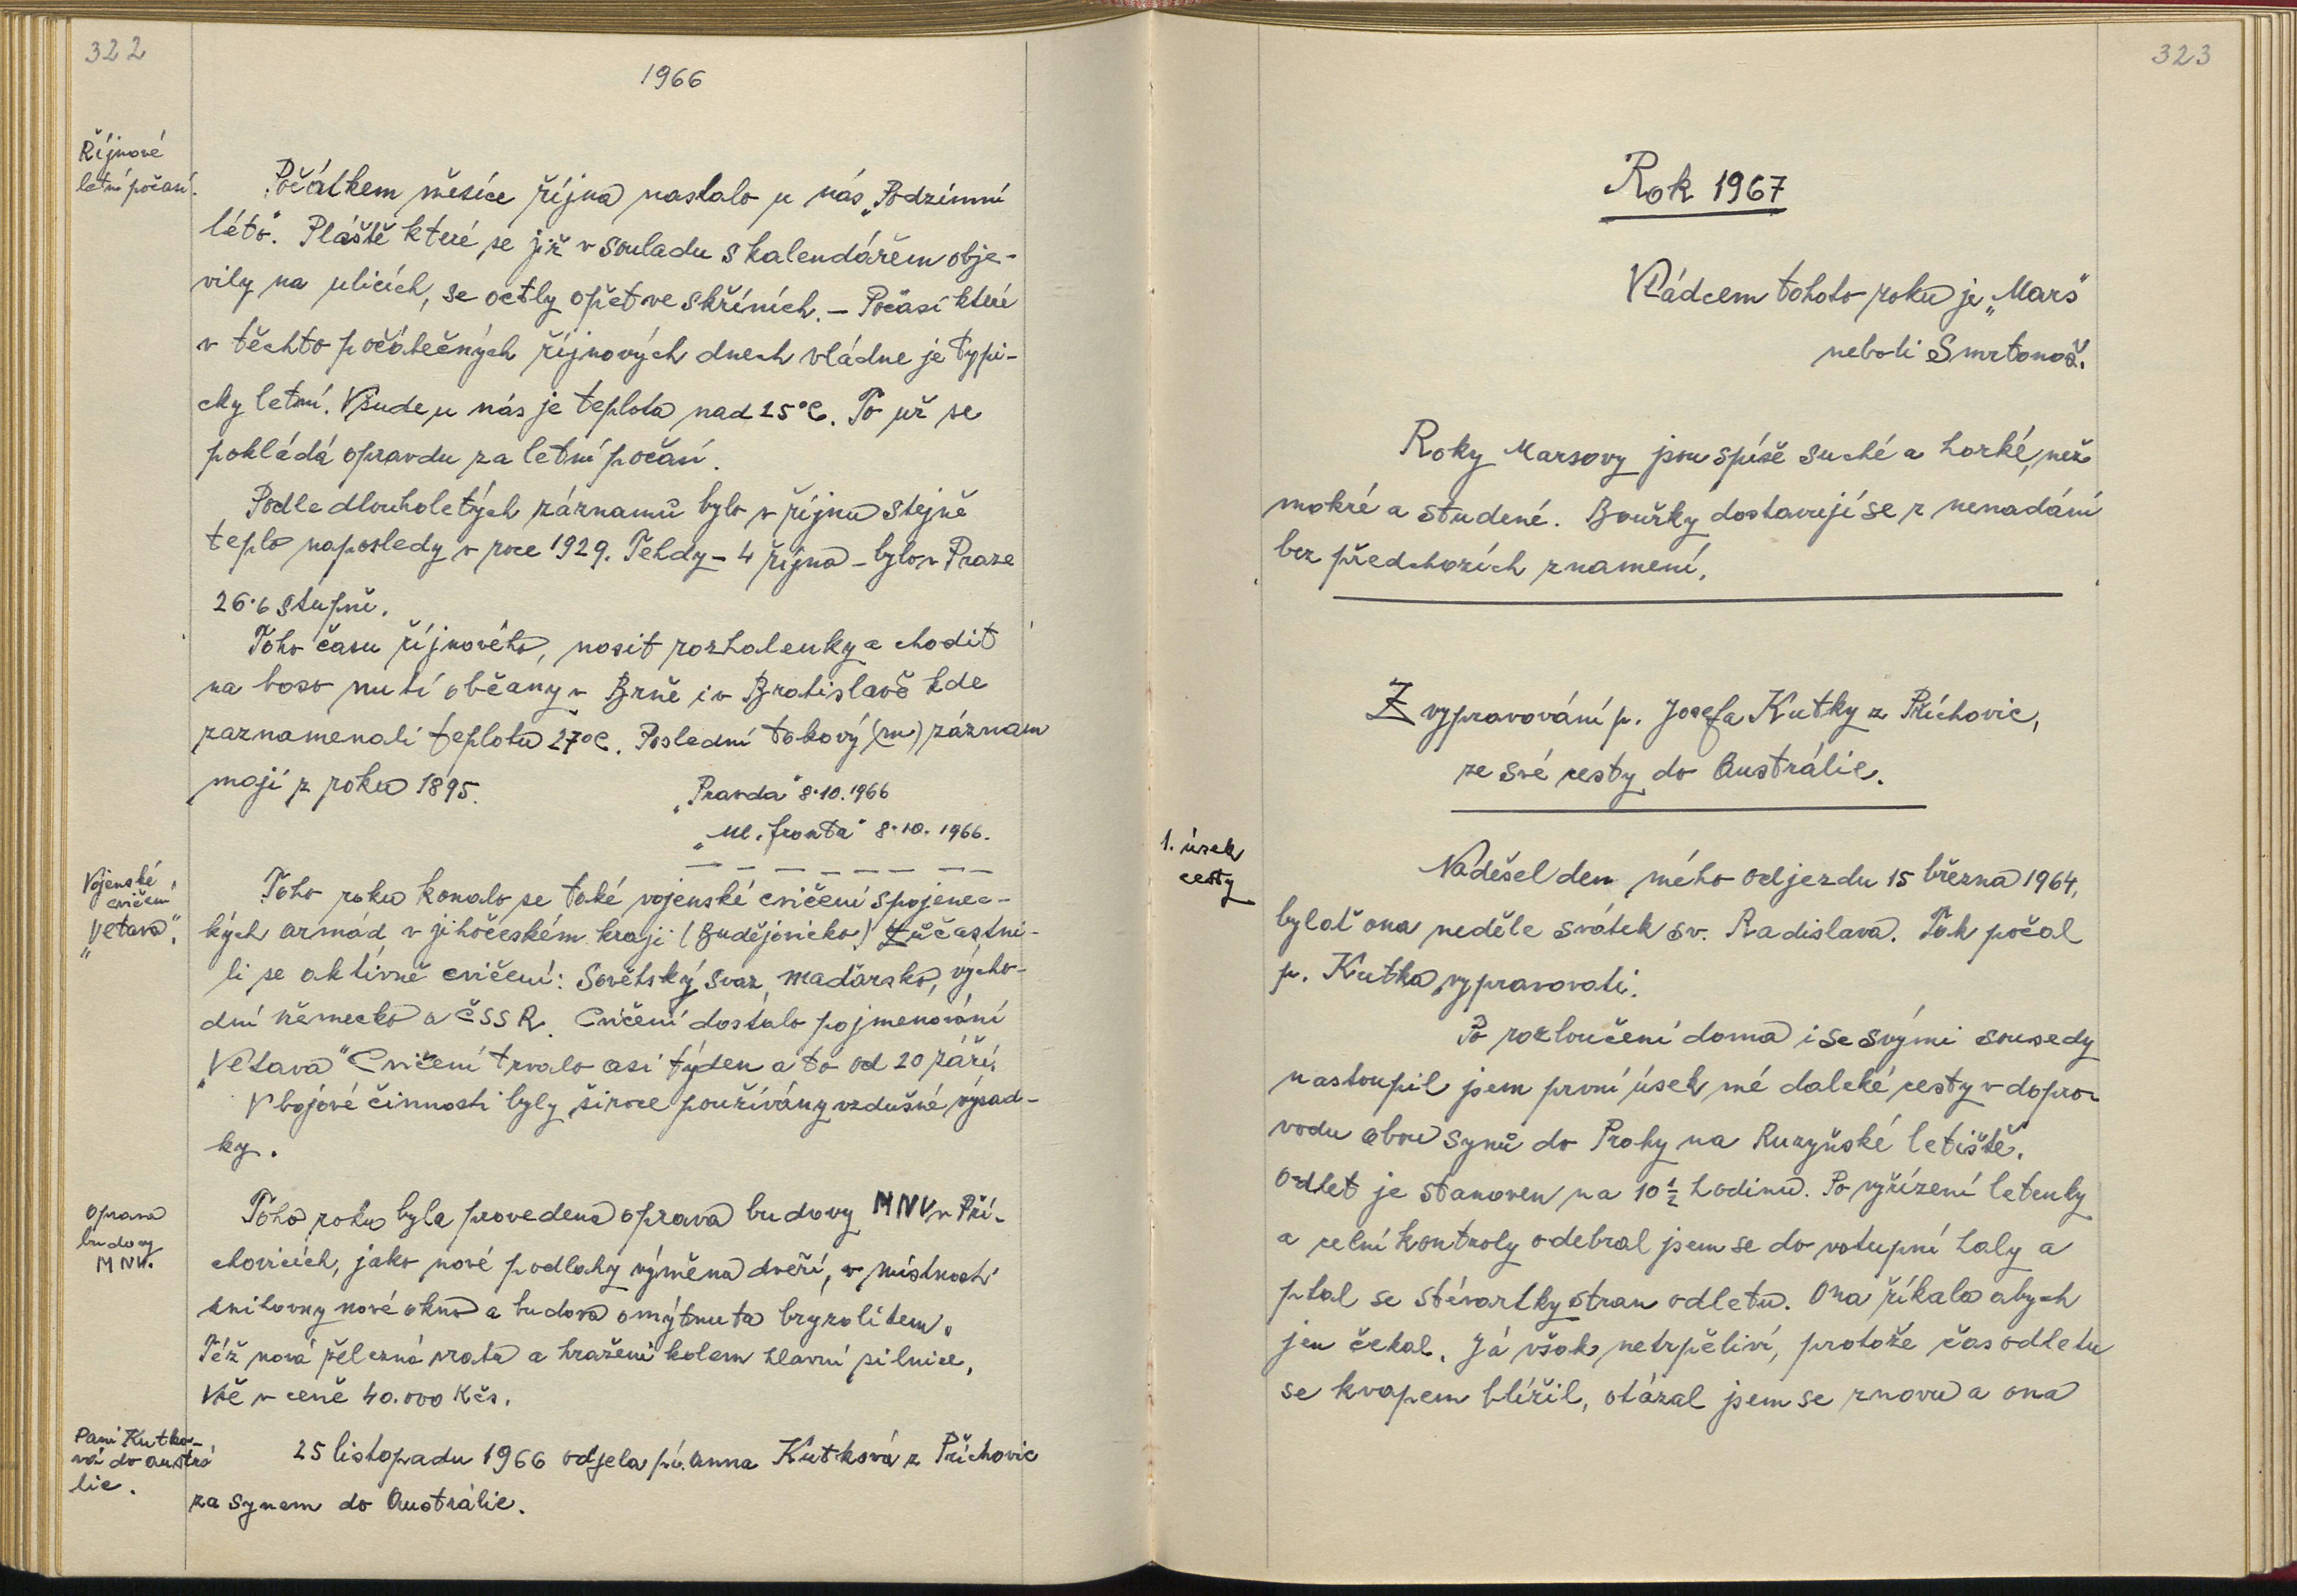 322
1966
Říjnové
letní počasí.
Počátkem měsíce října nastalo u nás „Podzimní
léto". Pláště které se již v souladu s kalendářem obje-
vily na ulicích, se octly opět ve skříních. – Počasí které
v těchto počátečných říjnových dnech vládne je typi-
cky letní. Všude u nás je teplota nad 25°C. To už se
pokládá opravdu za letní počasí.
Podle dlouholetých záznamů bylo v říjnu stejně
teplo naposledy v roce 1929. Tehdy – 4 října – bylo v Praze
26·6 stupně.
Toho času říjnového, nosit rozhalenky a chodit
na boso nutí občany v Brně i v Bratislavě kde
zaznamenali teplotu 27°C. Poslední takový (m) záznam
mají z roku 1895.
„Pravda" 8·10.1966
„Ml. fronta" 8·10. 1966.
Vojenské
cvičení
„Vltava".
Toho roku konalo se také vojenské cvičení spojenec-
kých armád v jihočeském kraji (Budějovicko) Zůčastni-
li se aktívně cvičení: Sovětský svaz, maďarsko, výcho-
dní německo a ČSSR. Cvičení dostalo pojmenování
„Vltava" Cvičení trvalo asi týden a to od 20 září.
V bojové činnosti byly široce používány vzdušné výsad-
ky.
Oprava
budovy
MNV.
Toho roku byla provedena oprava budovy MNV v Pří-
chovicích, jako nové podlahy výměna dveří, v místnosti
knihovny nové okno a budova omýtnuta bryzolitem.
Též nová železná vrata a hražení kolem hlavní silnice,
Vše v ceně 40.000 Kčs.
Paní Kutko-
vá do austrá
lie.
25 listopadu 1966 odjela pí. Anna Kutková z Příchovic
za synem do Austrálie.
323
Rok 1967
Vládcem tohoto roku je „Mars"
neboli Smrtonoš.
Roky Marsovy jsou spíše suché a horké, než
mokré a studené. Bouřky dostavují se z nenadání
bez předchozích znamení.
Z vypravování p. Josefa Kutky z Příchovic,
ze své cesty do Austrálie.
1. úsek
cesty
Nadešel den mého odjezdu 15 března 1964,
bylať ona neděle svátek sv. Radislava. Tak počal
p. Kutka vypravovati.
Po rozloučení doma i se svými sousedy
nastoupil jsem první úsek mé daleké cesty v dopro-
vodu obou synů do Prahy na Ruzyňské letiště.
Odlet je stanoven na 10 ½ hodinu. Po vyřízení letenky
a celní kontroly odebral jsem se do vstupní haly a
ptal se stévartky stran odletu. Ona říkala abych
jen čekal. Já však netrpěliví, protože čas odletu
se kvapem blížil, otázal jsem se znovu a ona